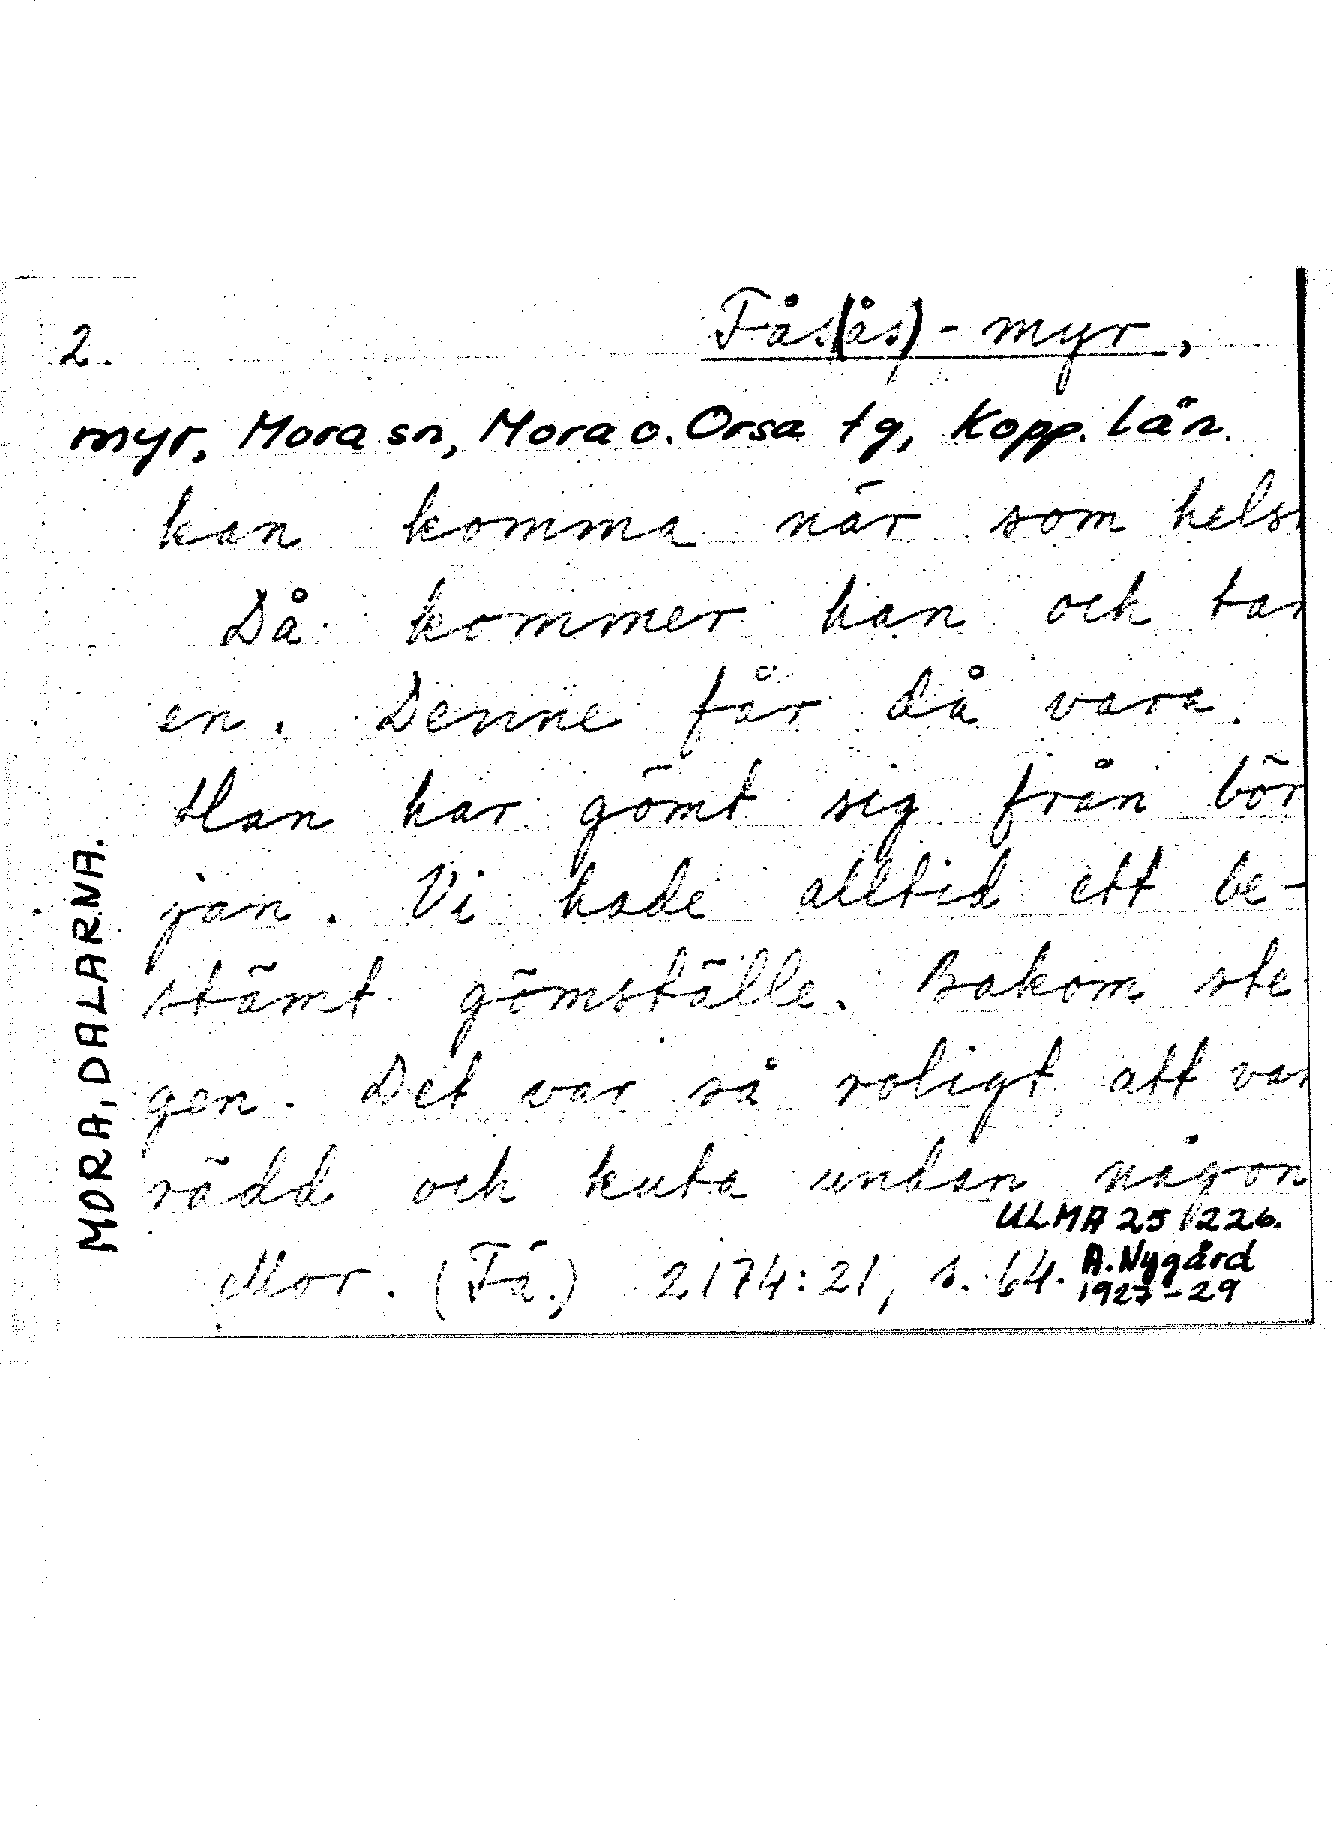 2. Fås(ås)-myr,
myr, Mora sn, Mora o. Orsa tg, Kopp. län.
kan komma när som hels
Då kommer han och tar
en. Denne får då vara.
Han har gömt sig från bör
jan. Vi hade alltid ett be-
stämt gömställe. Bakom ste
gen. Det var så roligt att var
rädd och kuta undan någon
ULMA 25/226.
Mor. (Fä.) 2174:21, s. 64. A. Nygård
1927-29
MORA, DALARNA.